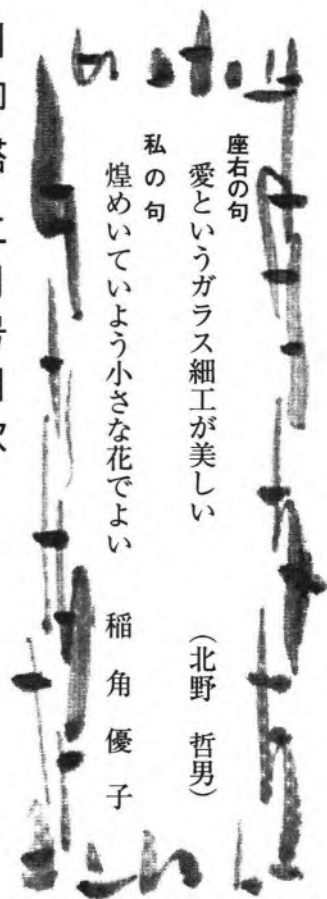 座右の句
愛というガラス細工が美しい (北野 哲男)
私の句
煌めいていよう小さな花でよい 稲角優子